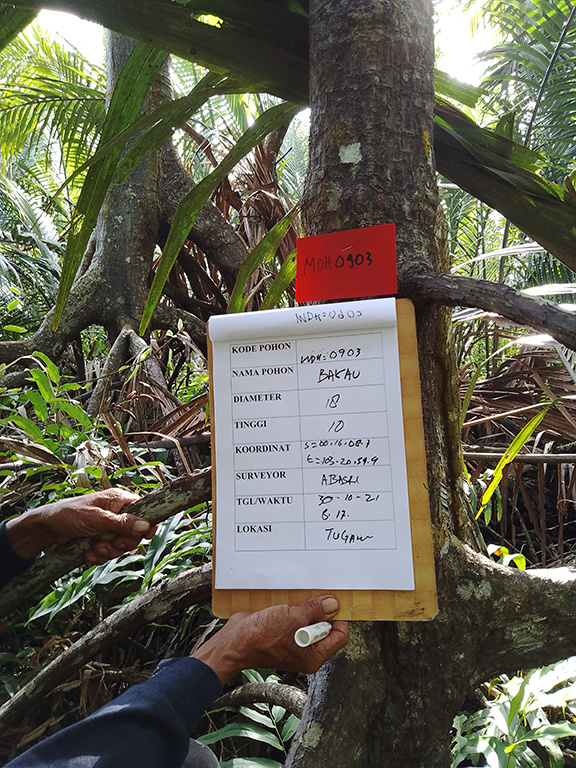 MDH 0903
MDH=0903
KODE POHON MDH=0903
NAMA POHON BAKAU
DIAMETER 18
TINGGI 10
KOORDINAT S=00.16.08.7
E=103.20.59.9
SURVEYOR
TGL/WAKTU 30-10-21
8.17.
LOKASI